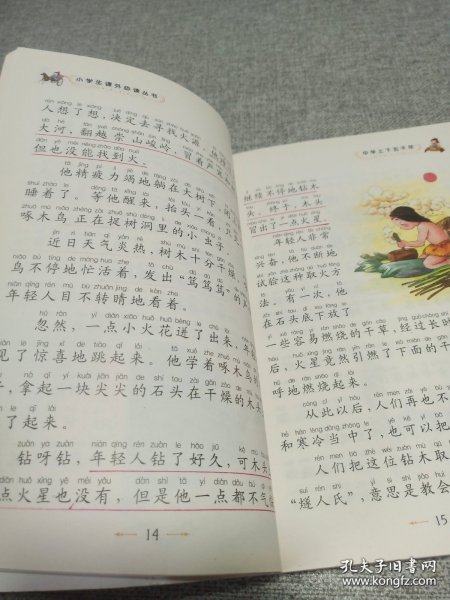 小学生课外必读丛书
人想了想，决定去寻找火源。他
大河，翻越崇山峻岭，冒着
但也没能找到火。
他精疲力竭地躺在大树下，闭
睡着了。等他醒来，抬头一看，
啄木鸟正在捉树洞里的小虫子。
近日天气炎热，树木十分干燥，
鸟不停地忙活着，发出“笃笃笃”的
年轻人目不转睛地看着。
忽然，一点小火花迸了出来，年
见了惊喜地跳起来。他学着啄木鸟
子，拿起一块尖尖的石头在干燥的木头
了起来。
钻呀钻，年轻人钻了好久，可木头
点火星也没有，但是他一点都不气
14
中华上下五千年
继续不停地钻木
头。终于，木头
冒出了一点火星。
年轻人非常
兴奋，他不断地
试验这种取火方
法。有一次，他
在石头底下放了
一些容易燃烧的干草，经过长时
后，火星竟然引燃了下面的干
呼地燃烧起来。
从此以后，人们再也不
和寒冷当中了，也可以把
人们把这位钻木取
“燧人氏”，意思是教会
15
孔夫子旧书网
www.kongfz.com